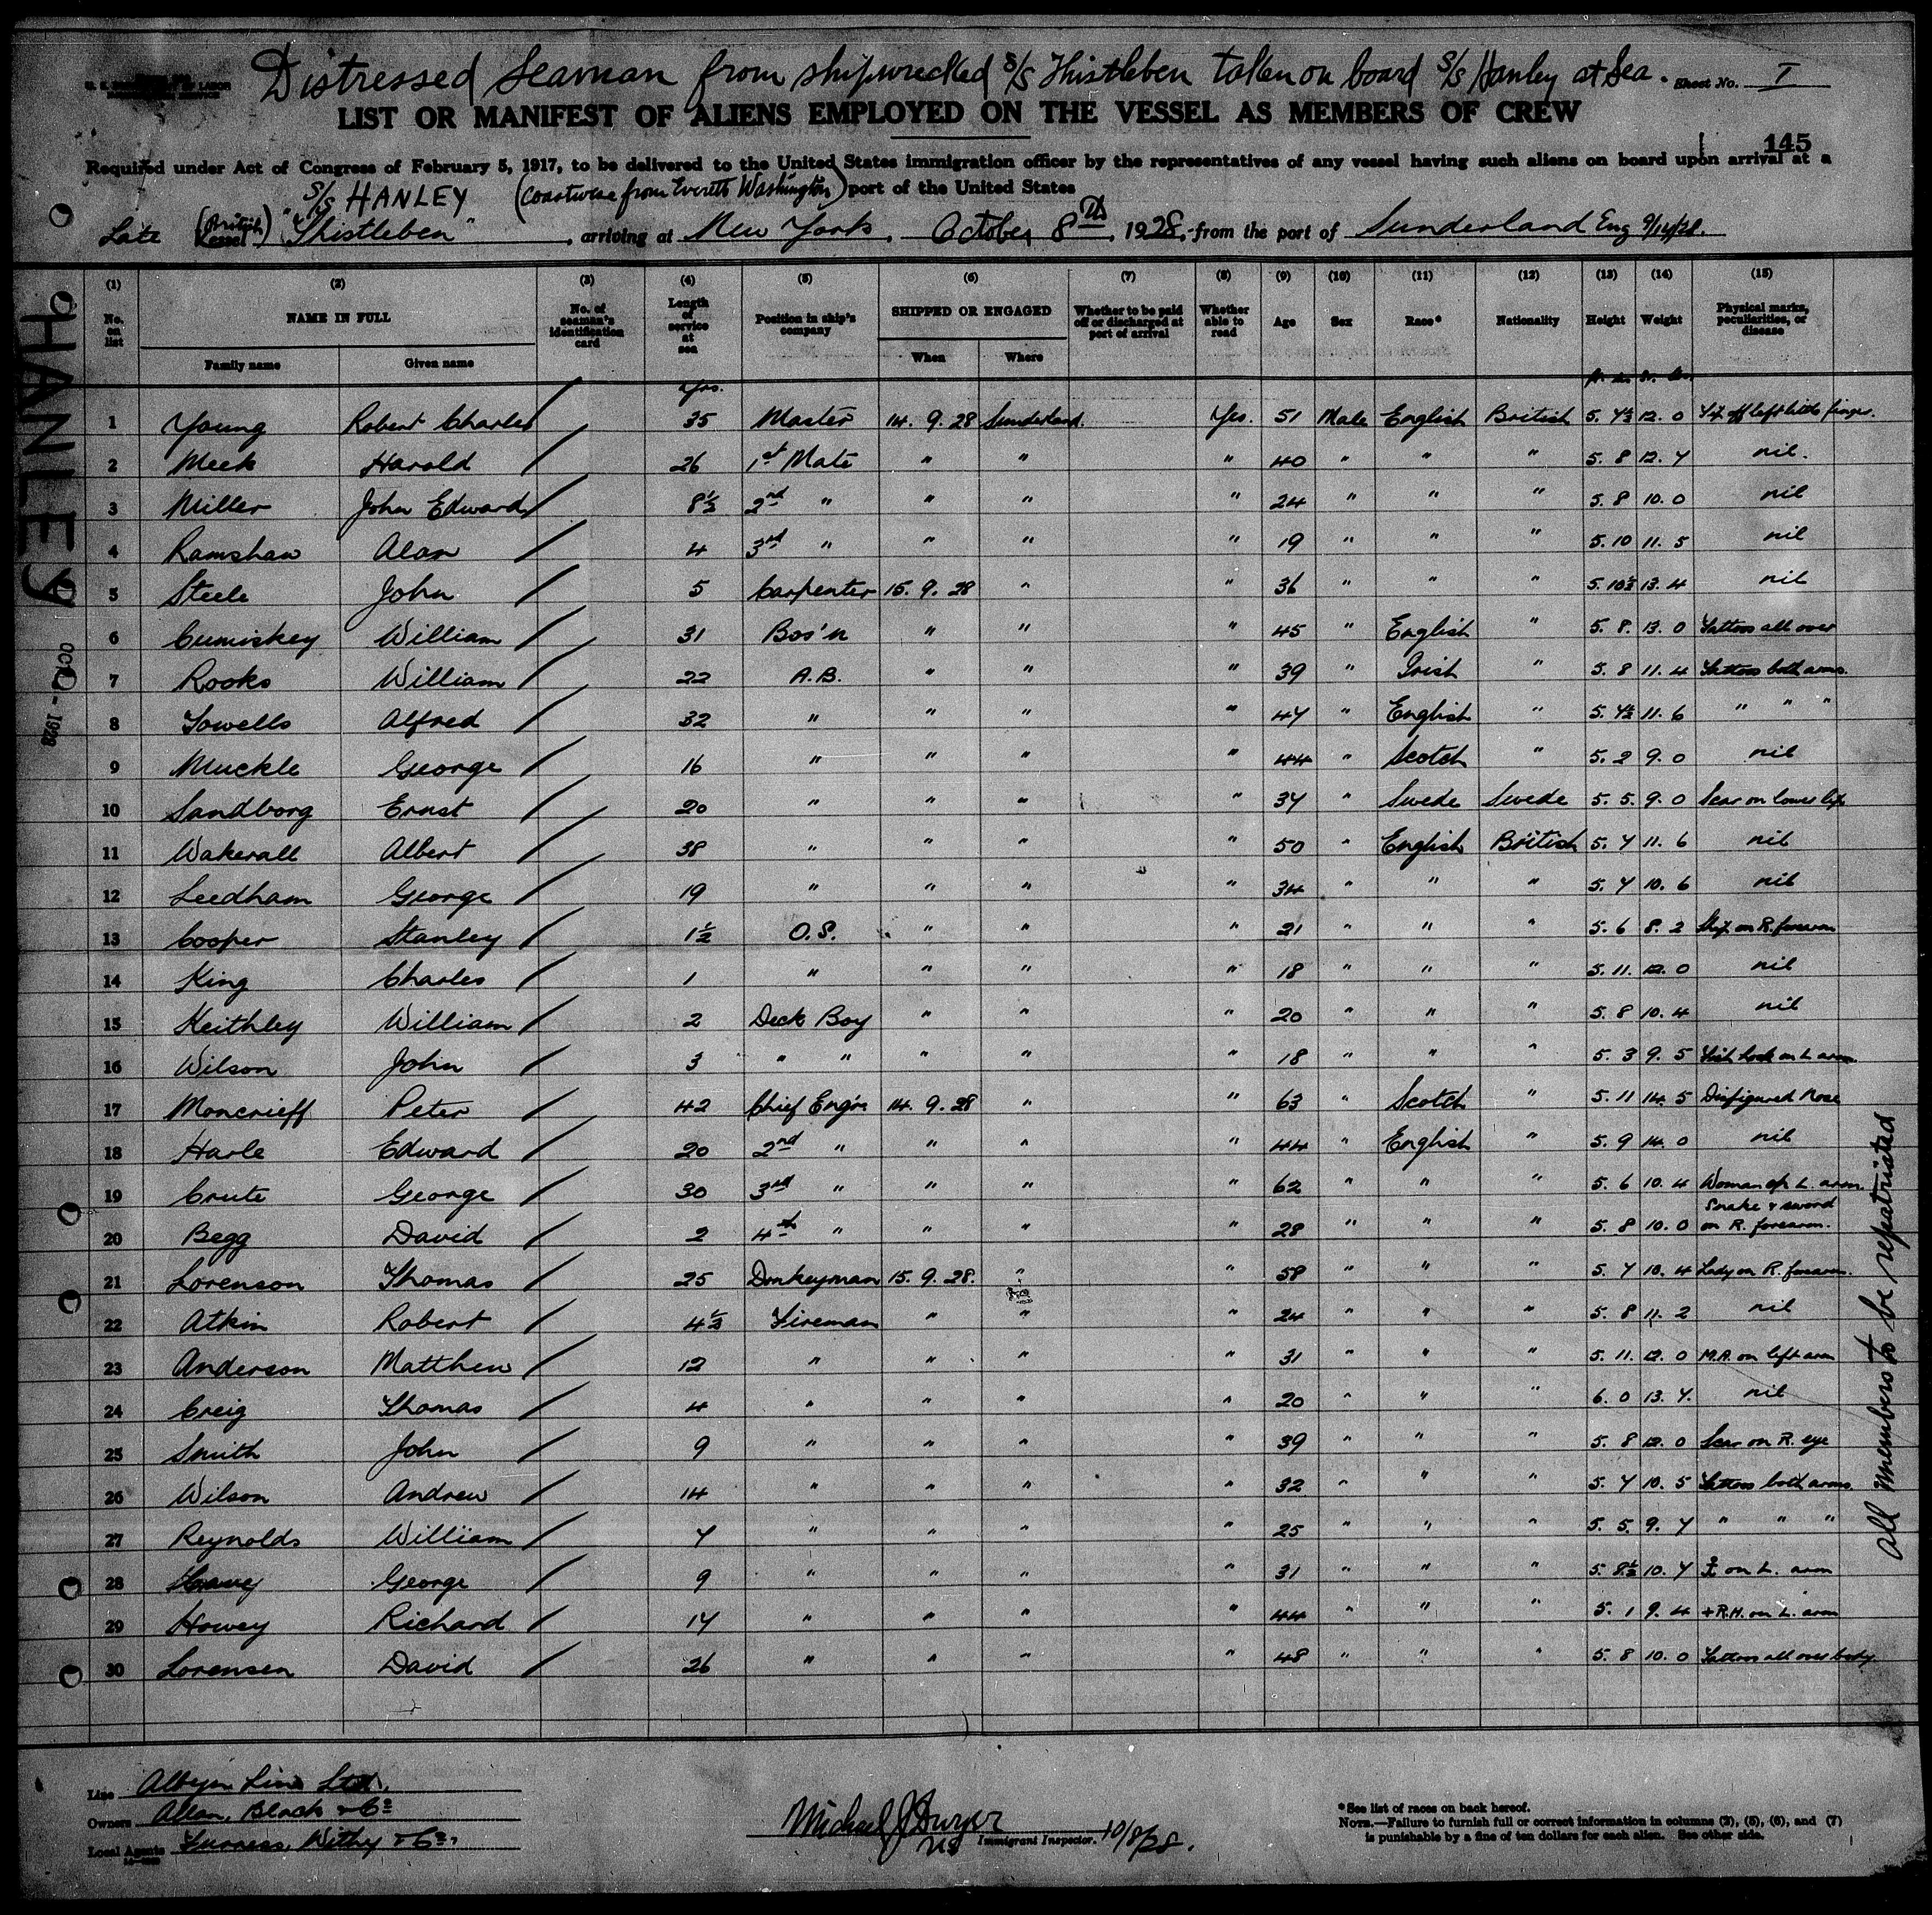 Distressed Seaman from shipwrecked S/S Thistleben taken on board S/S Hanley at Sea. Sheet No. I
LIST OR MANIFEST OF ALIENS EMPLOYED ON THE VESSEL AS MEMBERS OF CREW
145
Required under Act of Congress of February 5, 1917, to be delivered to the United States immigration officer by the representatives of any vessel having such aliens on board upon arrival at a
port of the United States
S/S HANLEY (Coastwise from Everett Washington)
Late (British Vessel) "Thistleben", arriving at New York, October 8th, 1928, from the port of Sunderland Eng
HANLEY
(1) (2) (3) (4) (5) (6) (7) (8) (9) (10) (11) (12) (13) (14) (15)
No. on list NAME IN FULL No. of seaman's identification card Length of service at sea Position in ship's company SHIPPED OR ENGAGED Whether to be paid off or discharged at port of arrival Whether able to read Age Sex Race* Nationality Height Weight Physical marks, peculiarities, or disease
Family name Given name When Where
Yrs.
1 Young Robert Charles 35 Master 14. 9. 28 Sunderland. Yes. 51 Male English British 5. 7½ 12. 0 off left little finger.
2 Meek Harold 26 1st Mate " " " 40 " " " 5. 8 12. 7 nil.
3 Miller John Edward 8½ 2nd " " " " 24 " " " 5. 8 10. 0 nil
4 Ramshaw Alan 4 3rd " " " " 19 " " " 5. 10 11. 5 nil
5 Steele John 5 Carpenter 15. 9. 28 " " 36 " " " 5. 10½ 13. 4 nil
6 Cumiskey William 31 Bos'n " " " 45 " English " 5. 8. 13. 0 Tattoos all over
7 Rooks William 22 A.B. " " " 39 " Irish " 5. 8 11. 4 Tattoos both arms.
8 Towells Alfred 32 " " " " 47 " English " 5. 7½ 11. 6 " " "
9 Muckle George 16 " " " " 44 " Scotch " 5. 2 9. 0 nil
10 Sandborg Ernst 20 " " " " 37 " Swede Swede 5. 5. 9. 0 Scar on lower lip
11 Wakerall Albert 38 " " " " 50 " English British 5. 7 11. 6 nil
12 Leedham George 19 " " " " 34 " " " 5. 7 10. 6 nil
13 Cooper Stanley 1½ O.S. " " " 21 " " " 5. 6 8. 2 Ship on R. forearm
14 King Charles 1 " " " " 18 " " " 5. 11. 12. 0 nil
15 Keithley William 2 Deck Boy " " " 20 " " " 5. 8 10. 4 nil
16 Wilson John 3 " " " " " 18 " " " 5. 3 9. 5 on L arm
17 Moncrieff Peter 42 Chief Eng'r 14. 9. 28 " " 63 " Scotch " 5. 11 14. 5 Disfigured Nose
18 Harle Edward 20 2nd " " " " 44 " English " 5. 9 14. 0 nil
19 Crute George 30 3rd " " " " 62 " " " 5. 6 10. 4 Woman on L. arm.
20 Begg David 2 4th " " " " 28 " " " 5. 8 10. 0 Snake & sword on R. forearm.
21 Lorenson Thomas 25 Donkeyman 15. 9. 28. " " 58 " " " 5. 7 10. 4 Lady on R. forearm.
22 Atkin Robert 4½ Fireman " " " 24 " " " 5. 8 11. 2 nil
23 Anderson Matthew 12 " " " " 31 " " " 5. 11. 12. 0 M.A. on left arm
24 Creig Thomas 4 " " " " 20 " " " 6. 0 13. 7. nil
25 Smith John 9 " " " " 39 " " " 5. 8 12. 0 Scar on R. eye
26 Wilson Andrew 14 " " " " 32 " " " 5. 7 10. 5 Tattoos both arms.
27 Reynolds William 7 " " " " 25 " " " 5. 5. 9. 7 " " "
28 George 9 " " " " 31 " " " 5. 8½ 10. 7 on L. arm
29 Howey Richard 17 " " " " 44 " " " 5. 1 9. 4 + R.H. on L. arm
30 Lorensen David 26 " " " " 48 " " " 5. 8 10. 0 Tattoos all over body.
All members to be repatriated
Line Albyn Line Ltd.
Owners Allan, Black & Co
Local Agents Furness, Withy & Co.
Michael J Dwyer
Immigrant Inspector. 10/8/28.
*See list of races on back hereof.
NOTE.—Failure to furnish full or correct information in columns (2), (5), (6), and (7)
is punishable by a fine of ten dollars for each alien. See other side.